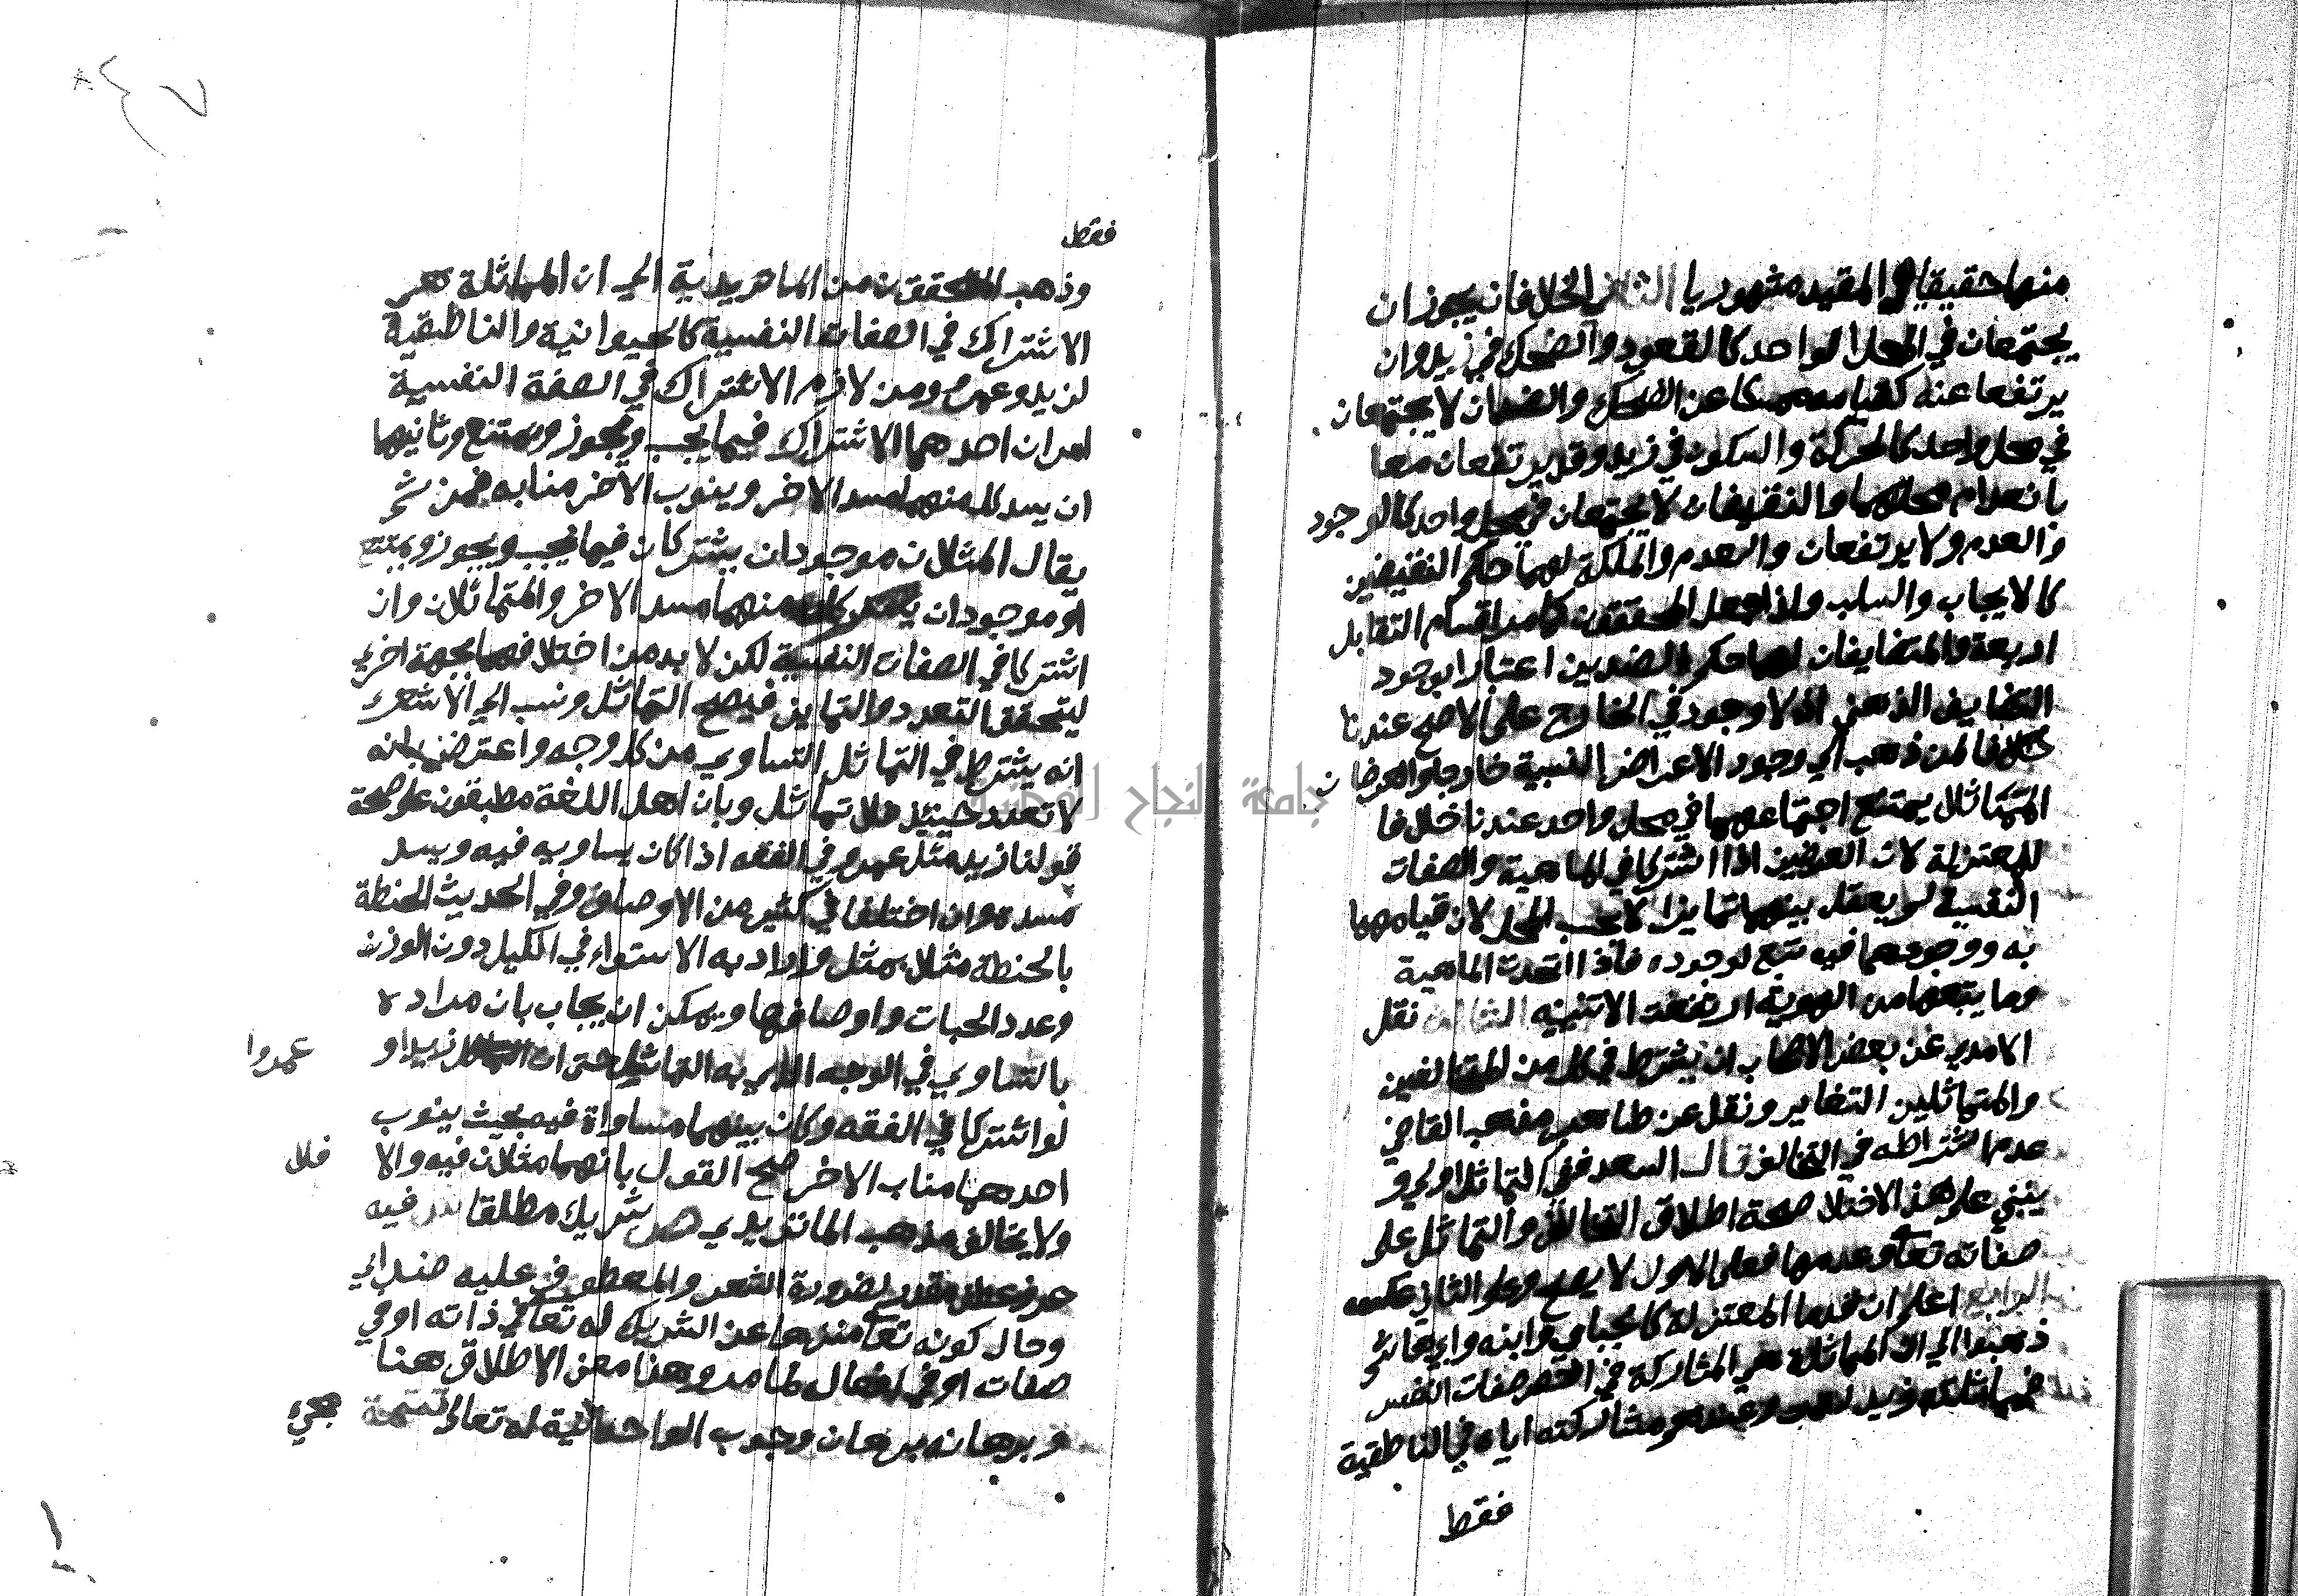 منها حقيقيا والمقيد مشهوريا الثالث الخلافان يجوز ان
يجتمعان في المحل الواحد كالقعود والضحك في زيد وان
يرتفعا عنه كقيامه ممسكا عن الضحك والضدان لا يجتمعان
في محل واحد كالحركة والسكون في زيد وقد يرتفعان معا
بانعدام محلهما والنقيضان لا يجتمعان في محل واحد كالوجود
والعدم ولا يرتفعان والعدم والملكة لهما حكم النقيضين
كالايجاب والسلب ولذا جعل المحققون كلا من اقسام التقابل
اربعة والمتضايفان لهما حكم الضدين اعتبارا بوجود
التضايف الذهني اذ لا وجود في الخارج على الاصح عندنا
خلافا لمن ذهب الي وجود الاعراض النسبية خارجا والعرضان
المتماثلان يمتنع اجتماعهما في محل واحد عندنا خلافا
للمعتزلة لان العرضين اذا اشتركا في الماهية والصفات
النفسية لم يعقل بينهما تمايز الا بحسب المحل لان قيامهما
به ووجودهما فيه تبع لوجوده فاذا اتحدت الماهية
وما يتبعها من الهوية ارتفعت الاثنينية الثالث نقل
الامدي عن بعض الاصحاب ان يشترط في كل من المتخالفين
والمتماثلين التغاير ونقل عن ظاهر مذهب القاضي
عدم اشتراطه في التخالف قال السعد ففي التماثل اولي و
ينبني علي هذا الاختلاف صحة اطلاق التخالف والتماثل على
صفاته تعا وعدمها فعلى الاول لا يصح وعلى الثاني عكسه
الرابع اعلم ان قدما المعتزلة كالجبائي وابنه وابي هاشم
ذهبوا الي ان المماثلة هي المشاركة في اخص صفات النفس
فمماثلة زيد لعمرو عندهم مشاركته اياه في الناطقية
فقط
فقط
وذهب المحققون من الماتريدية الي ان المماثلة هي
الاشتراك في الصفات النفسية كالحيوانية والناطقية
لزيد وعمرو ومن لازم الاشتراك في الصفة النفسية
امران احدهما الاشتراك فيما يجب ويجوز ويمتنع وثانيهما
ان يسد كل منهما مسد الاخر وينوب الاخر منابه فمن ثم
يقال المثلان موجودان يشتركان فيما يجب ويجوز ويمتنع
او موجودان يسد كل منهما مسد الاخر والمتماثلان وان
اشتركا في الصفات النفسية لكن لا بد من اختلافهما بجهة اخري
ليتحقق التعدد والتمايز فيصح التماثل ونسب الي الاشعري
انه يشترط في التماثل التساوي من كل وجه واعترض بانه
لا تعدد حينئذ فلا تماثل وبان اهل اللغة مطبقون على صحة
قولنا زيد مثل عمرو في الفقه اذا كان يساويه فيه ويسد
مسده وان اختلفا في كثير من الاوصاف وفي الحديث الحنطة
بالحنطة مثلا بمثل واراد به الاستواء في الكيل دون الوزن
وعدد الحبات واوصافها ويمكن ان يجاب بان مراده
بالتساوي في الوجه الذي به التماثل حتى ان زيدا و عمروا
لو اشتركا في الفقه وكان بينهما مساواة فيه بحيث ينوب
احدهما مناب الاخر صح القول بانهما مثلان فيه والا فلا
ولا يخالف مذهب الماتريدي من شريك مطلقا فيه
حرف عطف مقدر لضرورة الشعر والمعطوف عليه ضد اي
وحال كونه تعا منزها عن الشريك له تعا في ذاته او في
صفاته او في افعاله لما مر وهذا معنى الاطلاق هنا
وبرهانه برهان وجوب الواحدانية له تعالى تتمة
جامعة النجاح الوطنية